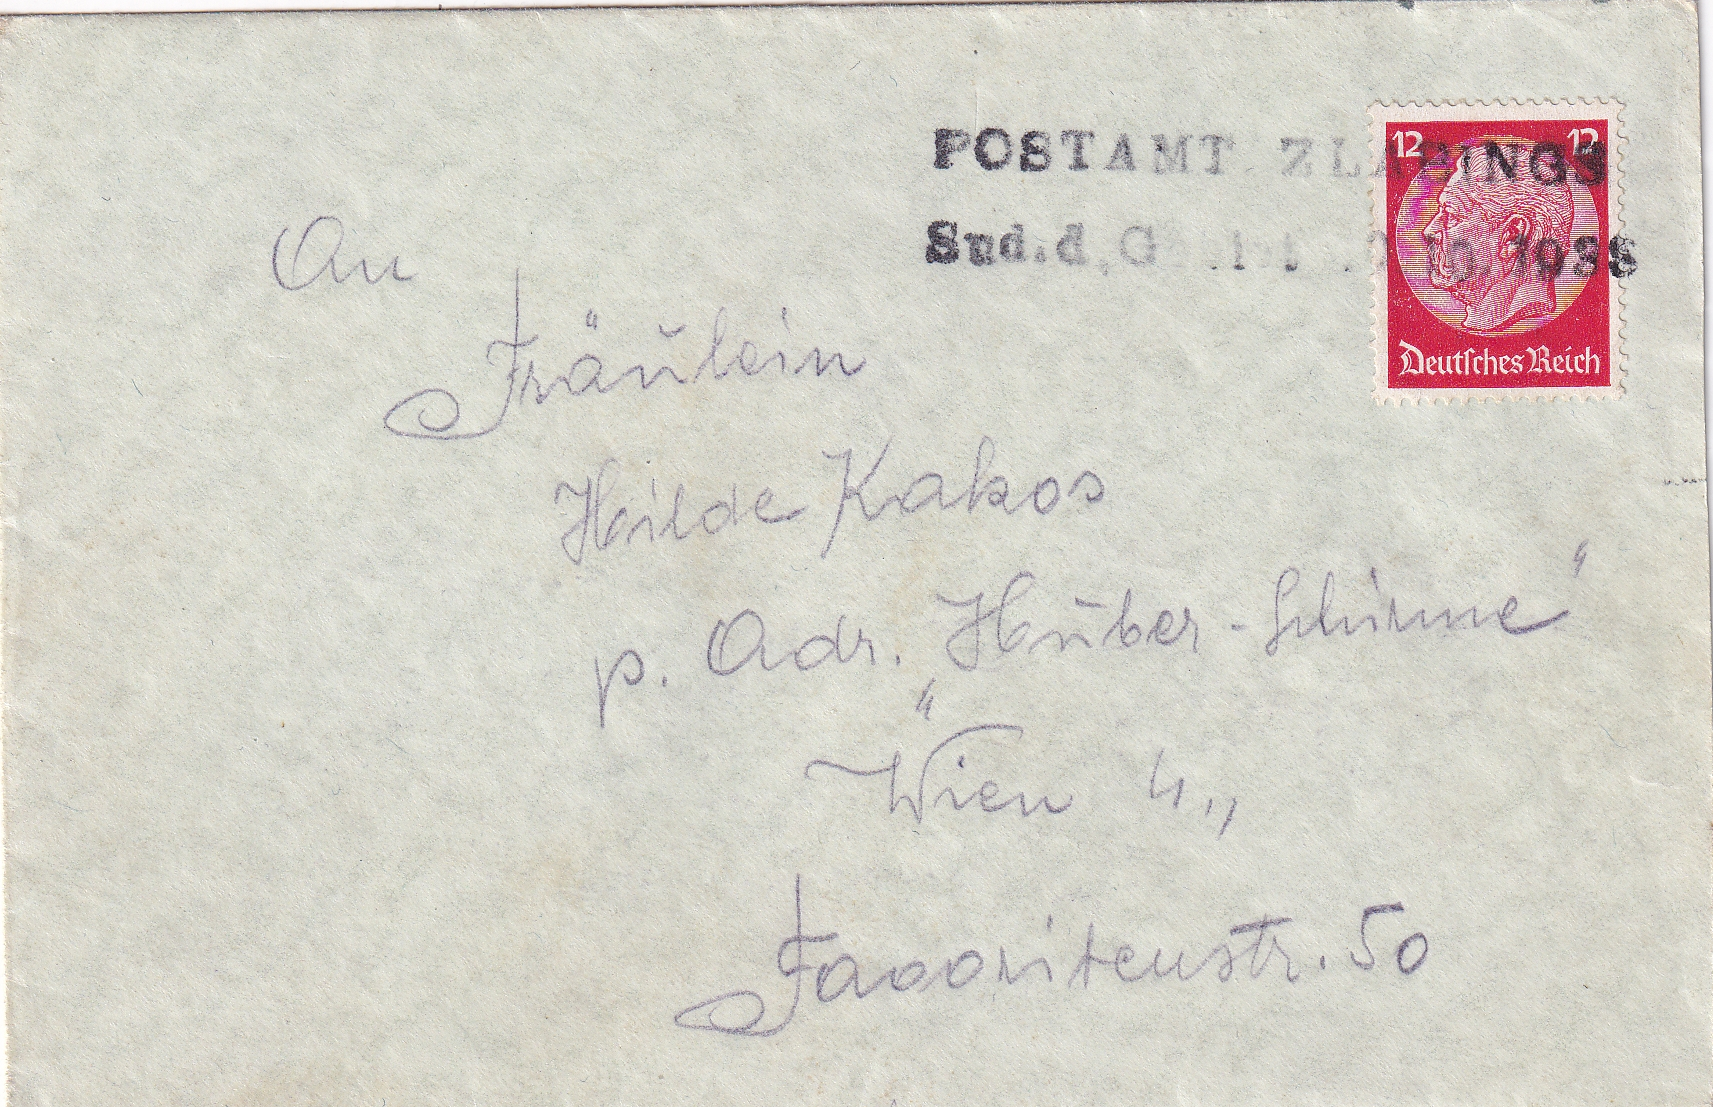 POSTAMT ZLABINGS
Sud.d.G 10.1938
12 12
Deutsches Reich
An
Fräulein
Hilde Kakos
p. Adr. „Huber-Schirme“
Wien 4.,
Favoritenstr. 50